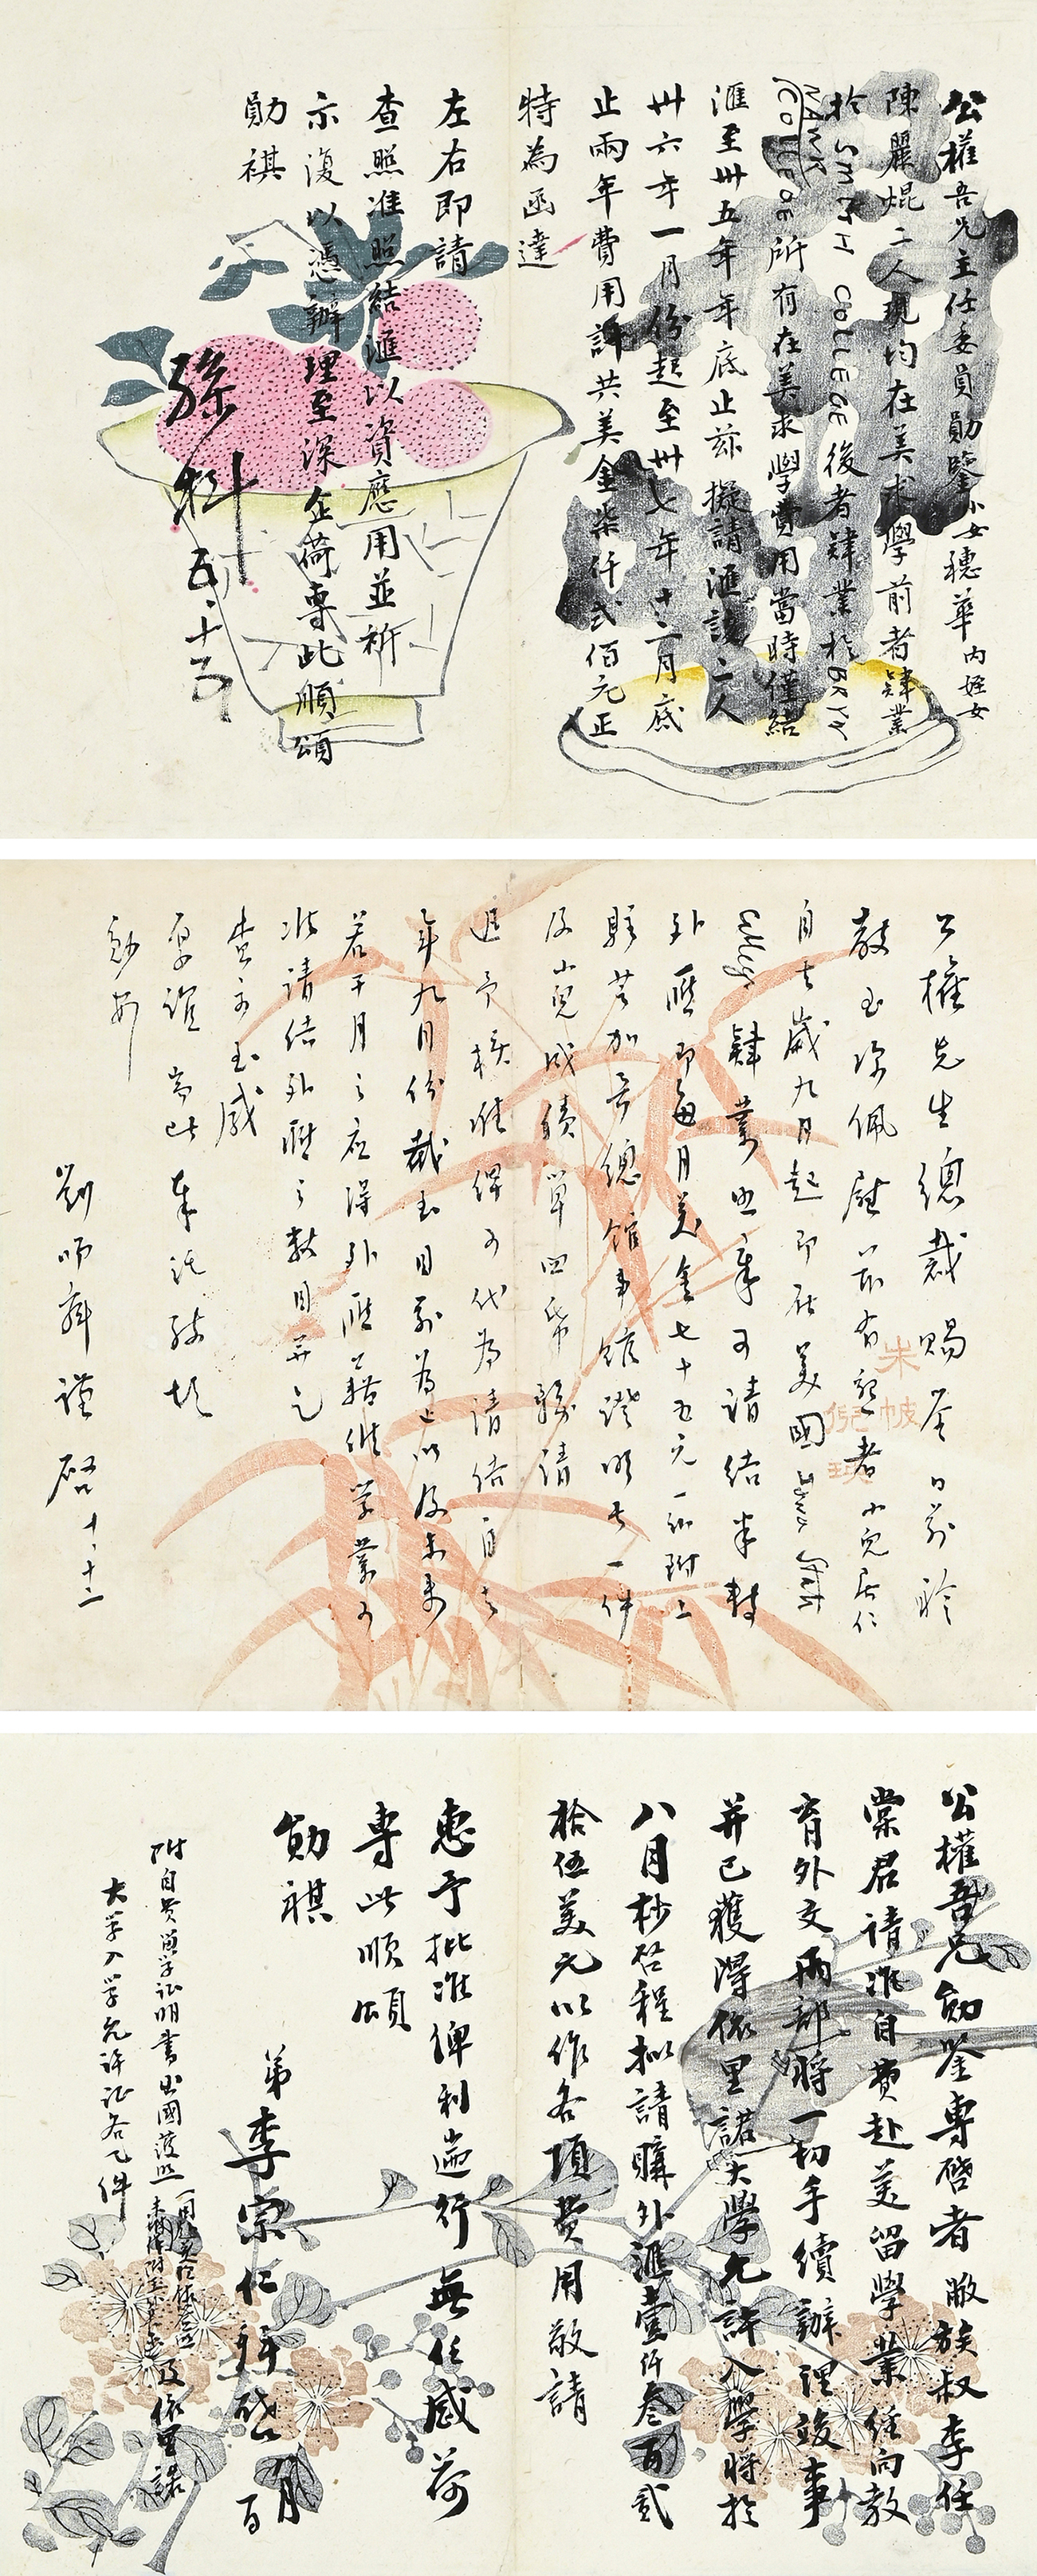 公權吾兄主任委員勛鑒小女穗華內姪女
陳麗焜二人現均在美求學前者肄業
於 SMITH COLLEGE 後者肄業於 BRYN
MAWR
COLLEGE 所有在美求學費用當時僅結
滙至卅五年年底止茲擬請滙該二人
卅六年一月份起至卅七年十二月底
止兩年費用計共美金柒仟弍佰元正
特為函達
左右即請
查照准照結滙以資應用並祈
示復以憑辦理至深企荷專此順頌
勛祺
孫科 五、十五
公權先生總裁賜鑒日前聆
教至深佩慰茲有懇者小兒居仁
自去歲九月起即在美國
肄業照章可請結半數
外匯即每月美金七十五元一紙附上
駐芝加哥總領事館證明書一件
及小兒成績單四紙務請
進予核准俾可代為請結自去
年九月份截至目前為止以及未來
若干月之應得外匯藉供學業可
准請結外匯之數目并乞
查示至感
厚誼耑此奉託敬頌
勛安
劉師舜謹啓 十、十二
公權吾兄勛鑒專啓者敝族叔李任
棠君請准自費赴美留學業經向教
育外交兩部將一切手續辦理竣事
并已獲得依里諾大學允許入學將於
八月杪啓程擬請購外滙壹仟叁百貳
拾伍美元以作各項費用敬請
惠予批准俾利遄行無任感荷
專此順頌
勛祺
弟李宗仁拜啓 月 日
附自費留學証明書出國護照 及依里諾
大學入學允許证各乙件
朱